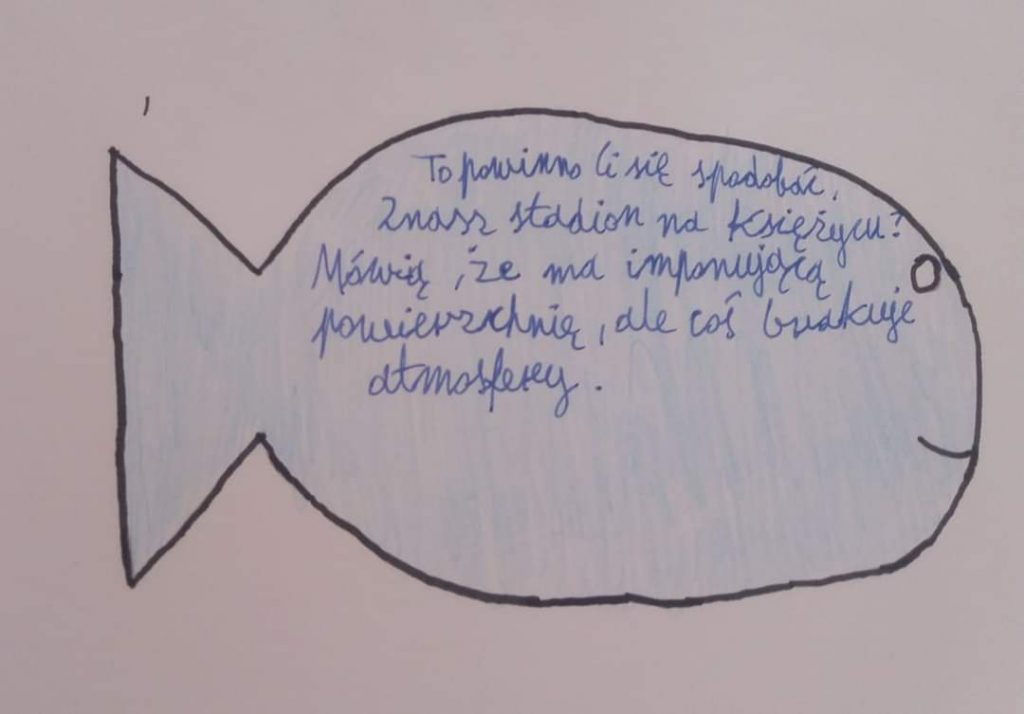 To powinno Ci się spodobać.
Znasz stadion na księżycu?
Mówią, że ma imponującą
powierzchnię, ale coś brakuje
atmosfery.